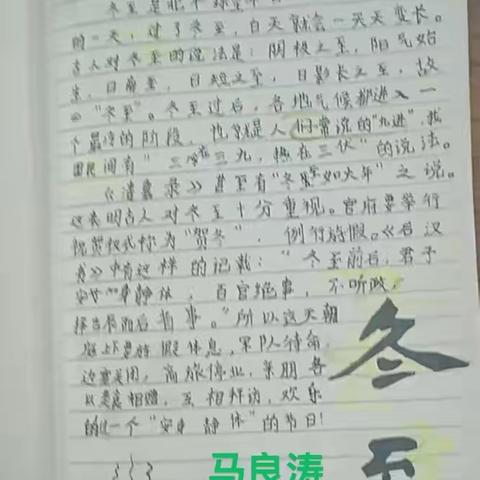 冬至是北半球
的一天，过了冬至，白天就会一天天变长。
古人对冬至的说法是：阴极之至，阳气始
至，日南至，日短之至，日影长之至，故
曰"冬至"。冬至过后，各地气候都进入一
个最冷的阶段，也就是人们常说的"九进"，我
国民间有"三九，热在三伏"的说法。
《清嘉录》甚至有"冬至如大年"之说。
这表明古人对冬至十分重视。官府要举行
祝贺仪式称为"贺冬"，例行放假。《后汉
书》中有这样的记载："冬至前后，君子
安身静体，百官绝事，不听政，
择吉辰而后省事。"所以这天朝
放假休息，军队待命，
边塞关闭，商旅停业，亲朋各
以美食相赠，互相拜访，欢乐
的过一个"安身静体"的节日！
冬
至
马良涛